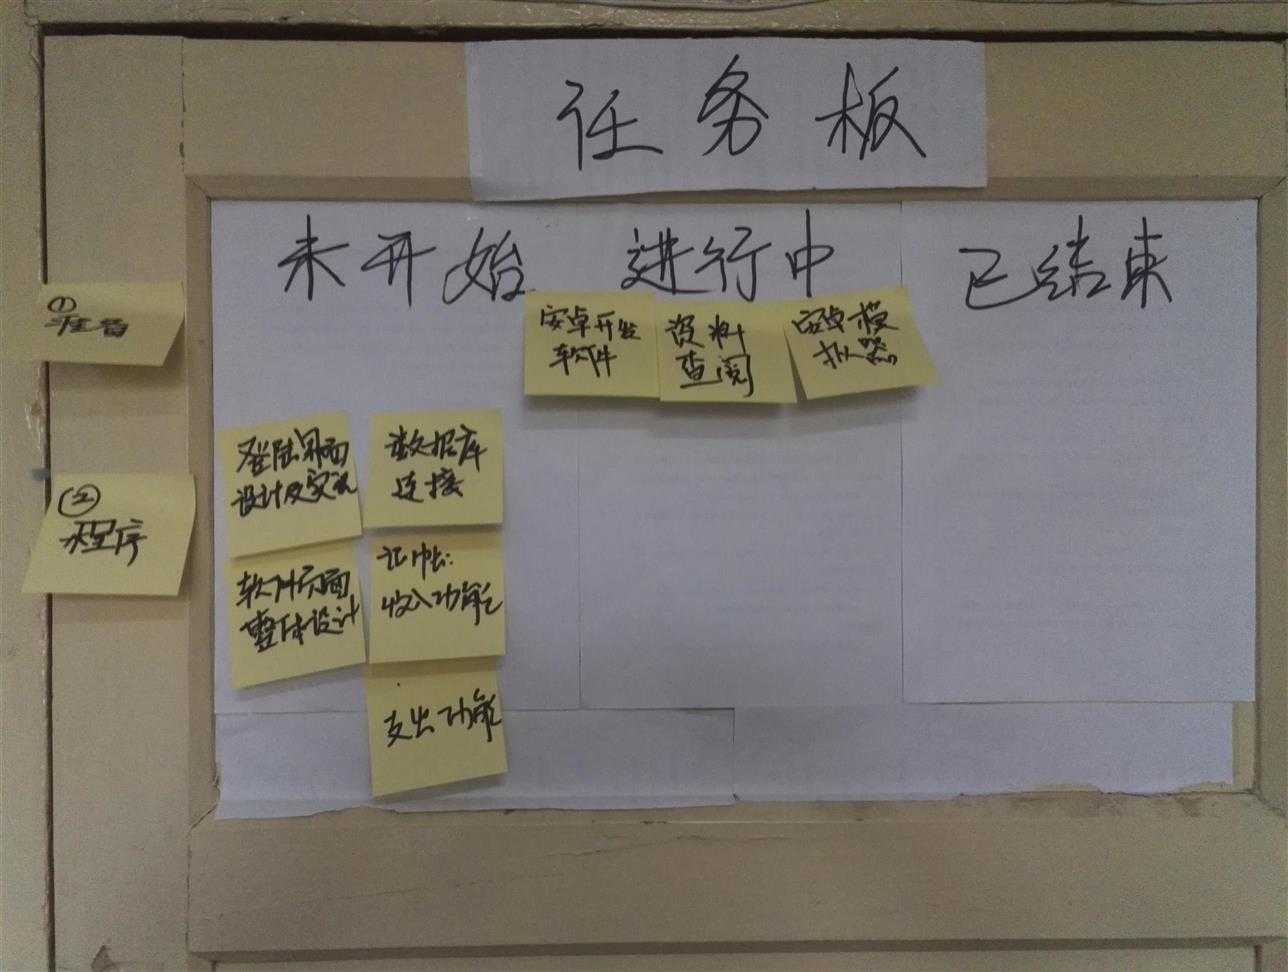 任务板
未开始 进行中 已结束
①
准备
安卓开发
软件
资料
查阅
安卓模
拟器
②
程序
登陆界面
设计及实现
数据库
连接
软件页面
整体设计
记帐:
收入功能
支出功能